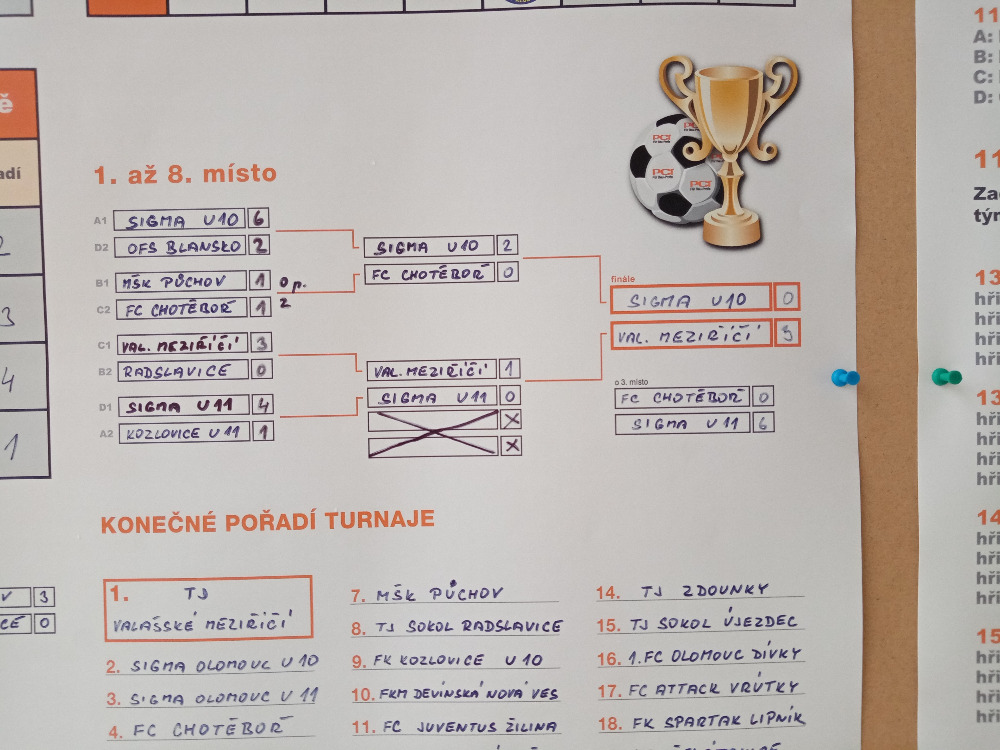 ě
adí
2
3
4
1
1. až 8. místo
A1 SIGMA U10 6
D2 OFS BLANSKO 2
B1 MŠK PŮCHOV 1 0 p.
C2 FC CHOTĚBOŘ 1 2
C1 VAL. MEZIŘÍČÍ 3
B2 RADSLAVICE 0
D1 SIGMA U11 4
A2 KOZLOVICE U11 1
SIGMA U10 2
FC CHOTĚBOŘ 0
VAL. MEZIŘÍČÍ 1
SIGMA U11 0
X
X
finále
SIGMA U10 0
VAL. MEZIŘÍČÍ 3
o 3. místo
FC CHOTĚBOŘ 0
SIGMA U11 6
PCI
PCI
PCI
KONEČNÉ POŘADÍ TURNAJE
V 3
CE 0
1. TJ
VALAŠSKÉ MEZIŘÍČÍ
2. SIGMA OLOMOUC U10
3. SIGMA OLOMOUC U11
4. FC CHOTĚBOŘ
7. MŠK PŮCHOV
8. TJ SOKOL RADSLAVICE
9. FK KOZLOVICE U10
10. FKM DEVÍNSKÁ NOVÁ VES
11. FC JUVENTUS ŽILINA
14. TJ ZDOUNKY
15. TJ SOKOL ÚJEZDEC
16. 1.FC OLOMOUC DÍVKY
17. FC ATTACK VRÚTKY
18. FK SPARTAK LIPNÍK
11
A:
B:
C:
D:
11
Zad
tým
13
hři
hři
hři
hři
13
hři
hři
hři
hři
14
hři
hři
hři
hři
15
hři
hři
hři
hři